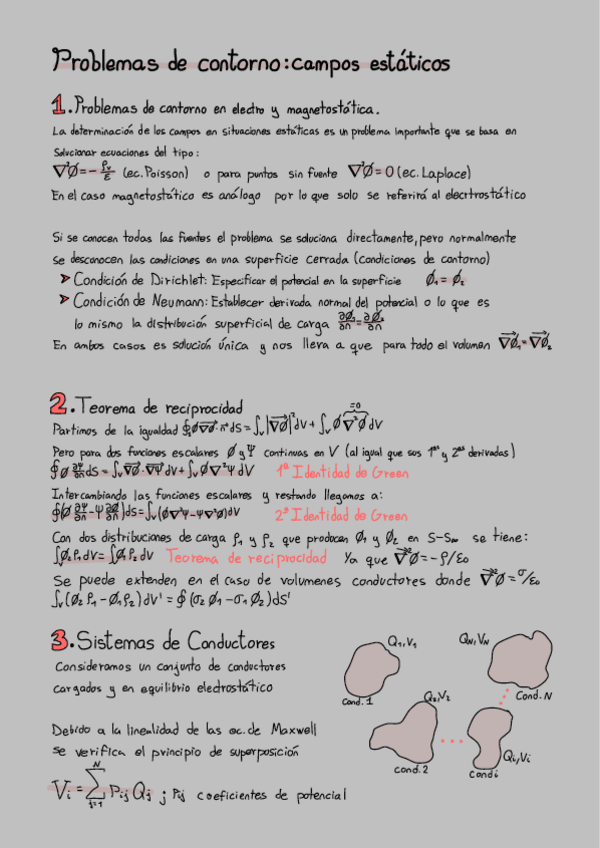 Problemas de contorno: campos estáticos
1. Problemas de contorno en electro y magnetostática.
La determinación de los campos en situaciones estáticas es un problema importante que se basa en
solucionar ecuaciones del tipo:
∇²Ø = -ρᵥ/ε (ec. Poisson) o para puntos sin fuente ∇²Ø = 0 (ec. Laplace)
En el caso magnetostático es análogo por lo que solo se referirá al elecrtrostático
Si se conocen todas las fuentes el problema se soluciona directamente, pero normalmente
se desconocen las condiciones en una superficie cerrada (condiciones de contorno)
➤ Condición de Dirichlet: Especificar el potencial en la superficie Ø₁ = Ø₂
➤ Condición de Neumann: Establecer derivada normal del potencial o lo que es
lo mismo la distribución superficial de carga ∂Ø₁/∂n = ∂Ø₂/∂n
En ambos casos es solución única y nos lleva a que para todo el volumen ∇Ø₁ = ∇Ø₂
2. Teorema de reciprocidad
Partimos de la igualdad ∮ₛ Ø∇Ø·n dS = ∫ᵥ |∇Ø|² dV + ∫ᵥ Ø ∇²Ø dV =0
Pero para dos funciones escalares Ø y Ψ continuas en V (al igual que sus 1ᵃˢ y 2ᵃˢ derivadas)
∮ Ø ∂Ψ/∂n dS = ∫ᵥ ∇Ø·∇Ψ dV + ∫ᵥ Ø∇²Ψ dV 1ª Identidad de Green
Intercambiando las funciones escalares y restando llegamos a:
∮(Ø ∂Ψ/∂n - Ψ ∂Ø/∂n)dS = ∫ᵥ(Ø∇²Ψ - Ψ∇²Ø)dV 2ª Identidad de Green
Con dos distribuciones de carga ρ₁ y ρ₂ que producen Ø₁ y Ø₂ en S-S∞ se tiene:
∫Ø₂ρ₁dV = ∫Ø₁ρ₂dV Teorema de reciprocidad Ya que ∇²Ø = -ρ/ε₀
Se puede extenden en el caso de volumenes conductores donde ∇²Ø = σ/ε₀
∫ᵥ(Ø₂ρ₁ - Ø₁ρ₂)dV' = ∮(σ₂Ø₁ - σ₁Ø₂)dS'
3. Sistemas de Conductores
Consideramos un conjunto de conductores
cargados y en equilibrio electrostático
Debido a la linealidad de las ec. de Maxwell
se verifica el principio de superposición
Vᵢ = ∑ⱼ₌₁ᴺ Pᵢⱼ Qⱼ ; Pᵢⱼ coeficientes de potencial
Q₁,V₁
Cond. 1
Q_N,V_N
Cond. N
Q₂,V₂
Cond. 2
Qᵢ,Vᵢ
Cond i